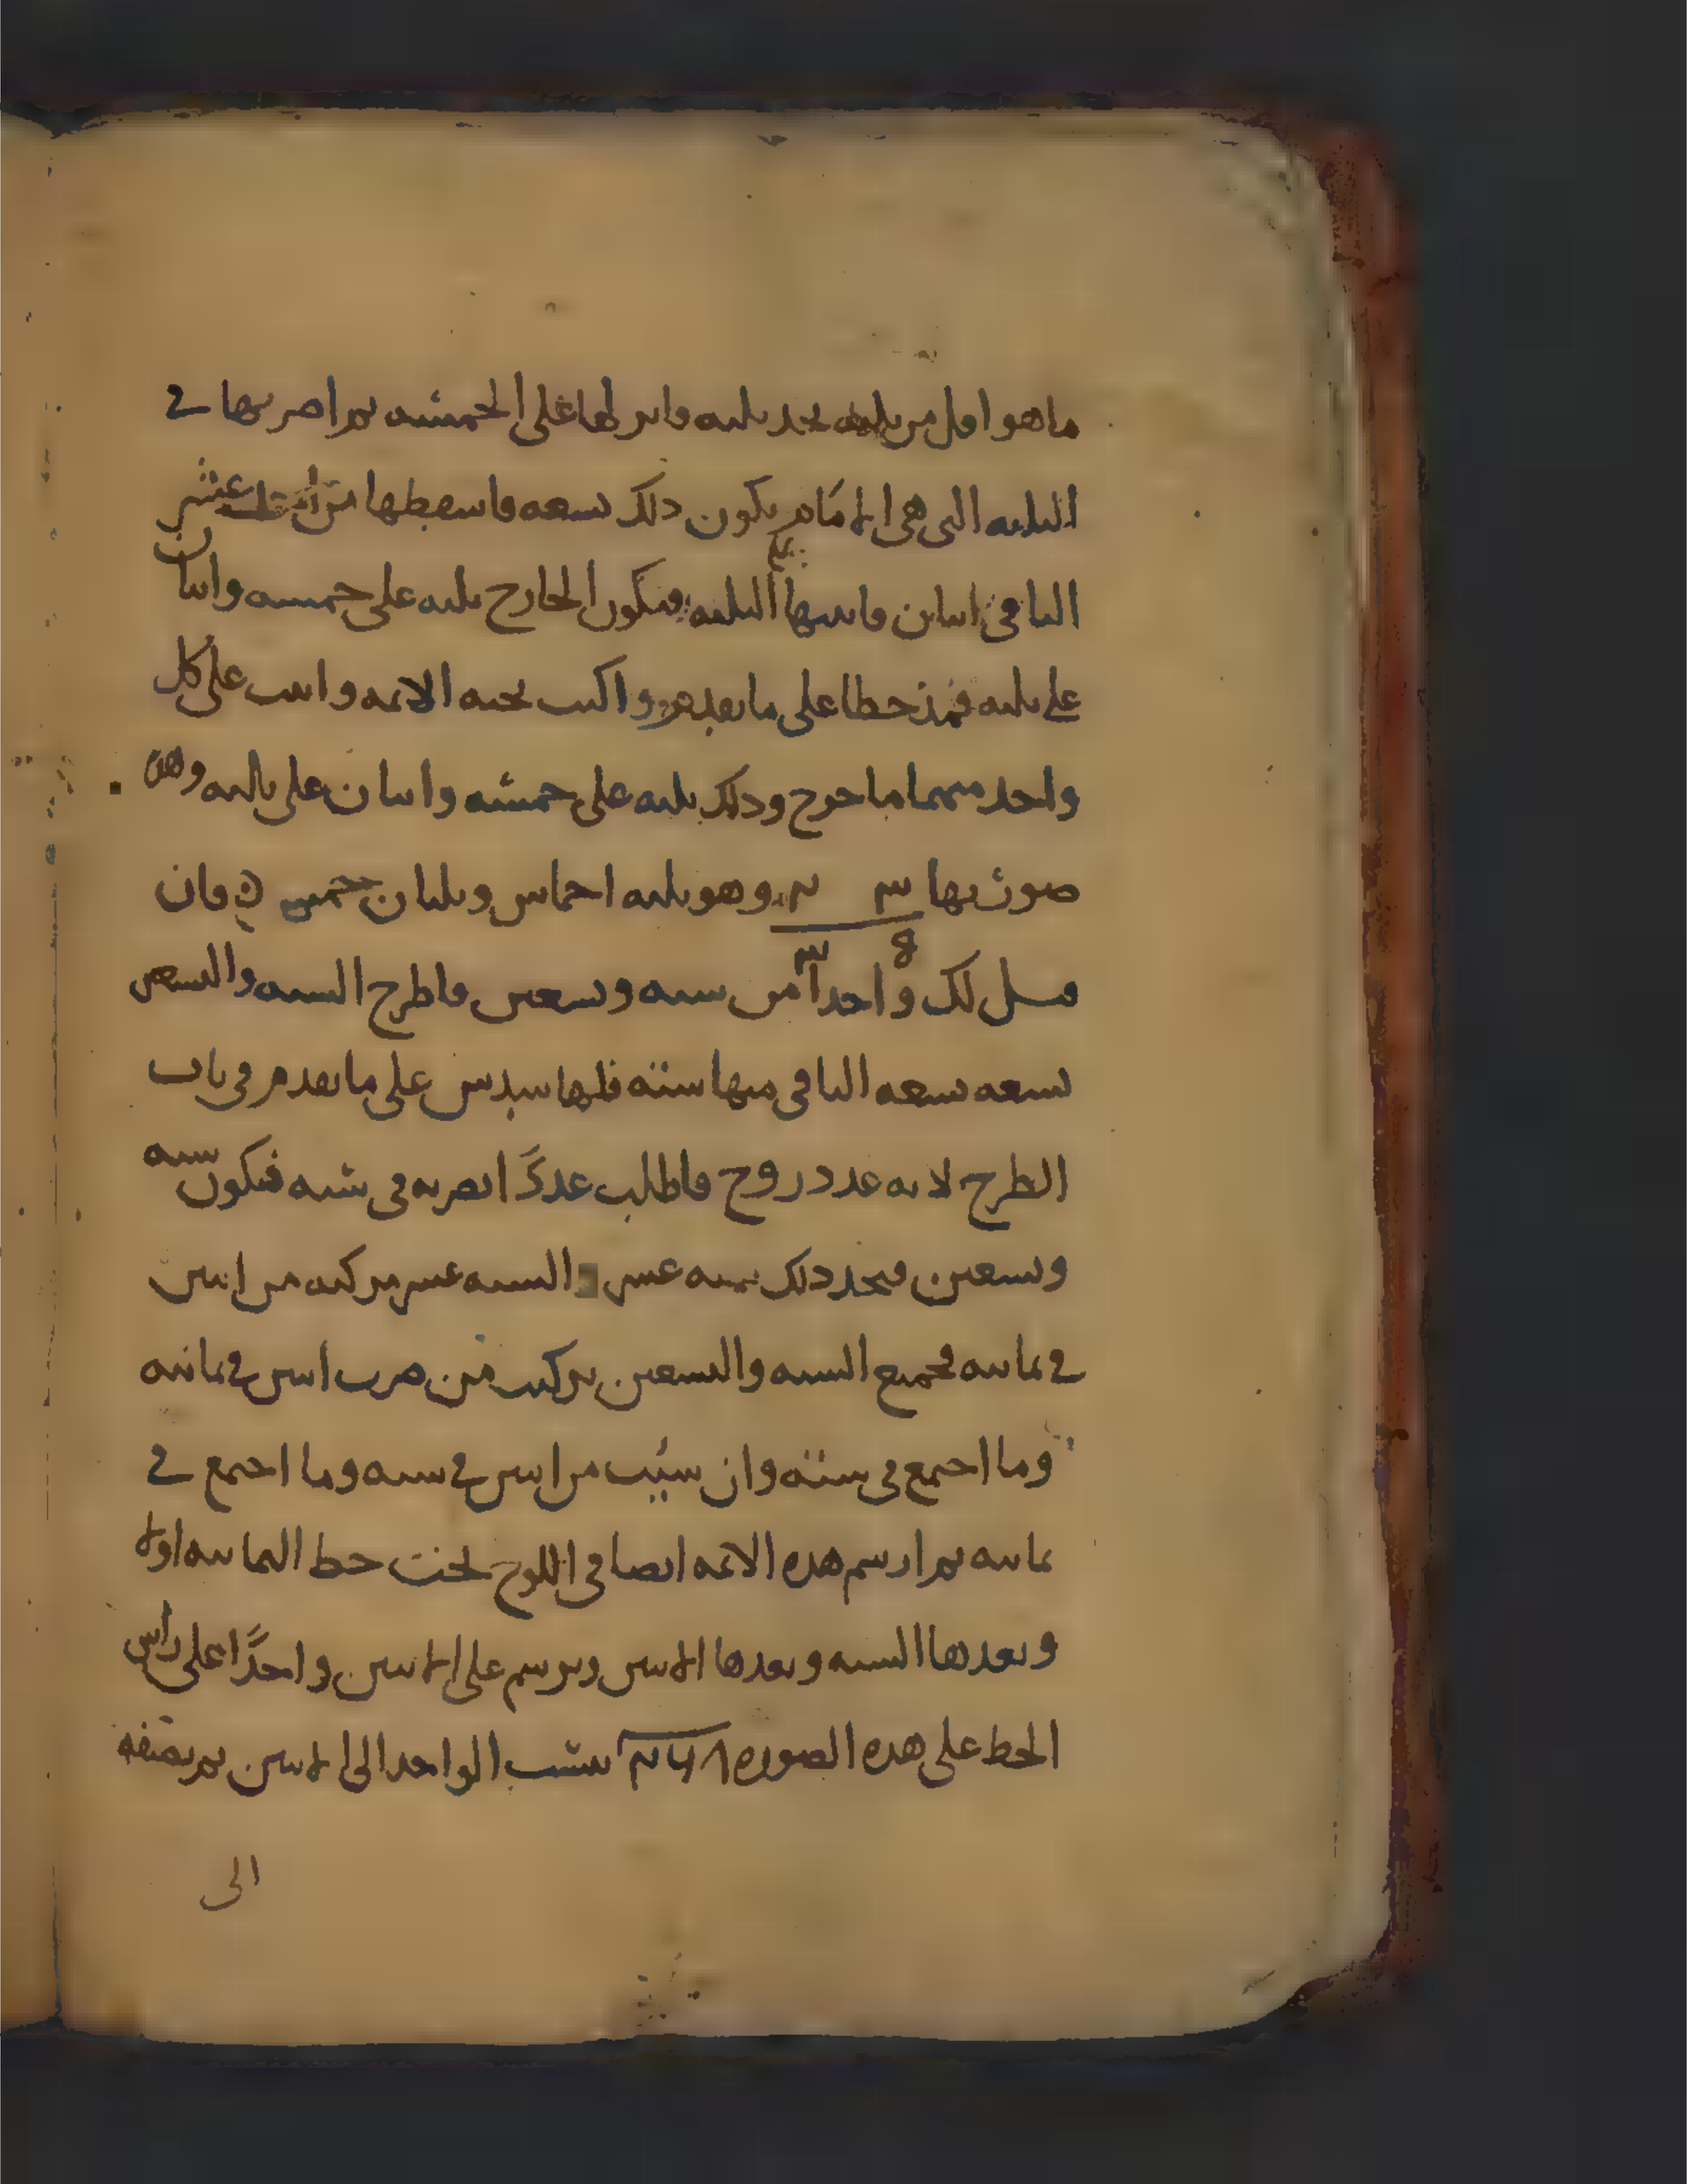 ما هو اقل من ثلثه تجد ثلثه فانزلها على الخمسه ثم اضربها في
الثلثه التي هي الامام يكون ذلك تسعه فاسقطها من احد عشر
الباقي اثنان فانسبها الثلثه فيكون الخارج ثلثه على خمسه واثنان
على ثلثه فمد خطا على ما تقدم واكتب تحته الائمه واثبت على كل
واحد منهما ما خرج وذلك ثلثه على خمسه واثنان على ثلاثه وهذه
صورتها ٣ ٢ وهو ثلثه اخماس وثلثان خمس فان
٥ ٣
قيل لك واحدا من سته وتسعين فاطرح السته والتسعين
تسعه تسعه الباقي منها سته فلها سدس على ما تقدم في باب
الطرح لانه عدد زوج فاطلب عددًا تضربه في سته فيكون سته
وتسعين فتجد ذلك سته عشر والسته عشر مركبه من اثنين
في ثمانيه فجميع السته والتسعين تركبت من ضرب اثنين في ثمانيه
وما اجتمع في سته وان شيت من اثنين في سته وما اجتمع في
ثمانيه ثم ارسم هذه الائمه ايضا في اللوح تحت خط الثمانيه اولا
وبعدها السته وبعدها الاثنين وترسم على الاثنين واحدًا على راس
الخط على هذه الصوره ٨ ٦ ٢ بنسب الواحد الى الاثنين ثم نصفه
الى